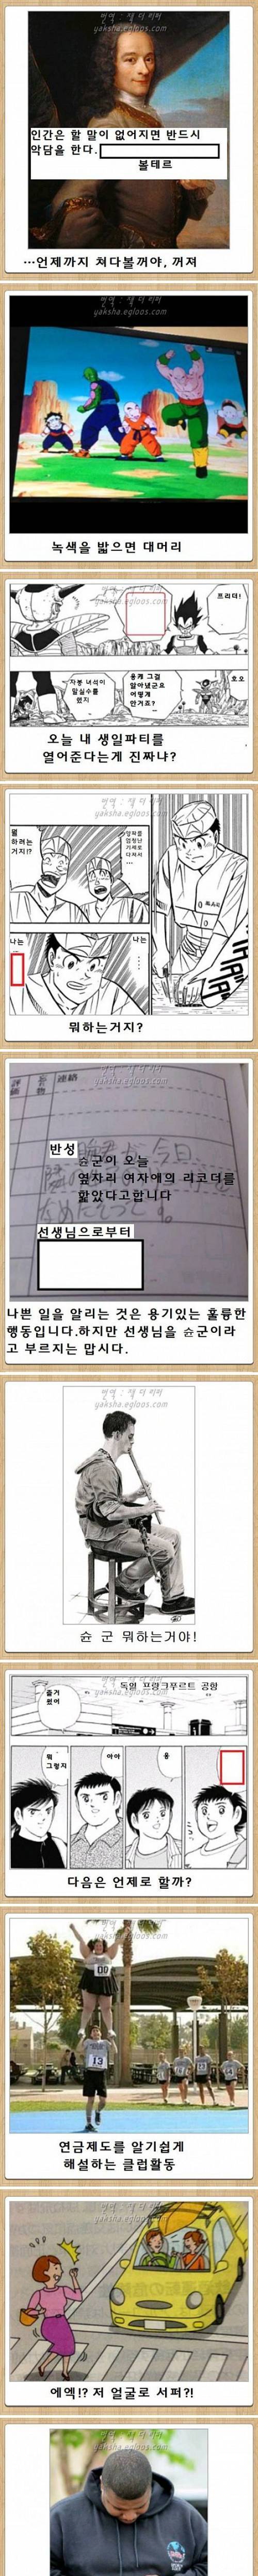 번역 : 잭 더 리퍼
yaksha.egloos.com
인간은 할 말이 없어지면 반드시
악담을 한다.
볼테르
…언제까지 쳐다볼꺼야, 꺼져
번역 : 잭 더 리퍼
yaksha.egloos.com
녹색을 밟으면 대머리
yaksha.egloos.com
프리더!
자봉 녀석이
말실수를
했지
용케 그걸
알아냈군요
어떻게
안거죠?
호오
오늘 내 생일파티를
열어준다는게 진짜냐?
번역 : 잭 더 리퍼
yaksha.egloos.com
뭘
하려는
거지!?
양파를
엄청난
기세로
다져서
…
나는
나는
뭐하는거지?
번역 : 잭 더 리퍼
yaksha.egloos.com
連絡
반성
슌군이 오늘
옆자리 여자애의 리코더를
핥았다고합니다
선생님으로부터
나쁜 일을 알리는 것은 용기있는 훌륭한
행동입니다.하지만 선생님을 슌군이라
고 부르지는 맙시다.
번역 : 잭 더 리퍼
yaksha.egloos.com
슌 군 뭐하는거야!
번역 : 잭 더 리퍼
yaksha.egloos.com
독일 프랑크푸르트 공항
즐거
웠어
뭐
그렇지
아아
응
다음은 언제로 할까?
번역 : 잭 더 리퍼
yaksha.egloos.com
00
13
연금제도를 알기쉽게
해설하는 클럽활동
번역 : 잭 더 리퍼
yaksha.egloos.com
에엑!? 저 얼굴로 서퍼?!
번역 : 잭 더 리퍼
yaksha.egloos.com